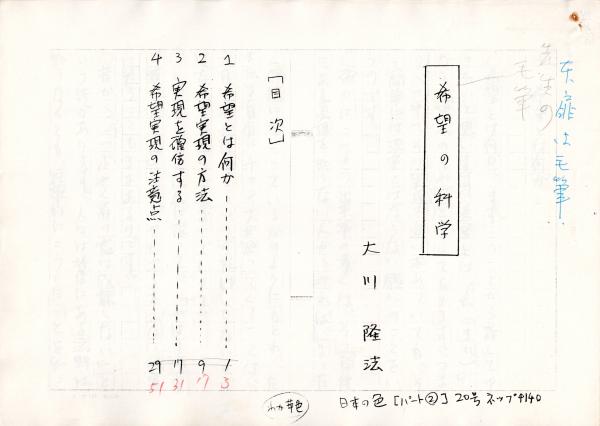 本扉は毛筆
先生の
毛筆
希望の科学
大川 隆法
[目次]
1 希望とは何か 1 3
2 希望実現の方法 9 17
3 実現を確信する 17 31
4 希望実現の注意点 29 51
わか草色
日本の色[パート②] 20号 ネップ 140